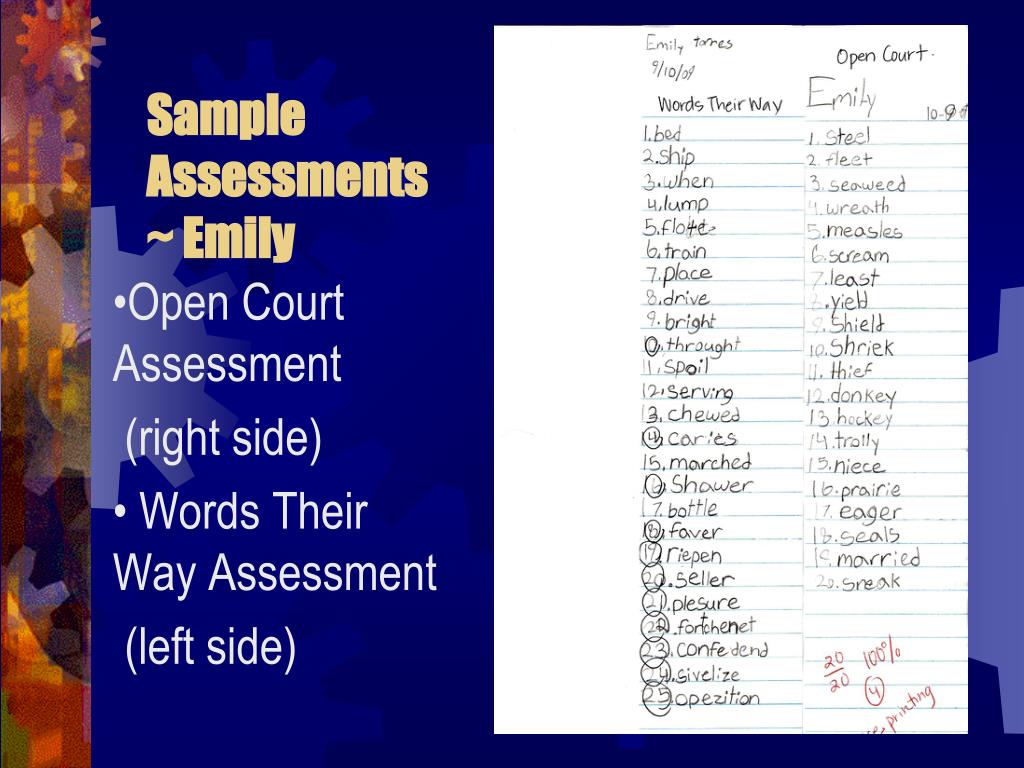 Sample
Assessments
~ Emily
•Open Court
Assessment
(right side)
• Words Their
Way Assessment
(left side)
Emily Torres
9/10/09
Words Their Way
1.bed
2.ship
3.when
4.lump
5.flote
6.train
7.place
8.drive
9.bright
10.throught
11.spoil
12.serving
13.chewed
14.caries
15.marched
16.Shower
17.bottle
18.faver
19.riepen
20.seller
21.plesure
22.fortchenet
23.confedend
24.sivelize
25.opezition
Open Court.
Emily
1. Steel
2. fleet
3. seaweed
4.wreath
5.measles
6.scream
7.least
8.yield
9.Shield
10.Shriek
11.thief
12.donkey
13.hockey
14.trolly
15.niece
16.prairie
17.eager
18.seals
19.married
20.sneak
20/20 100%
4
printing